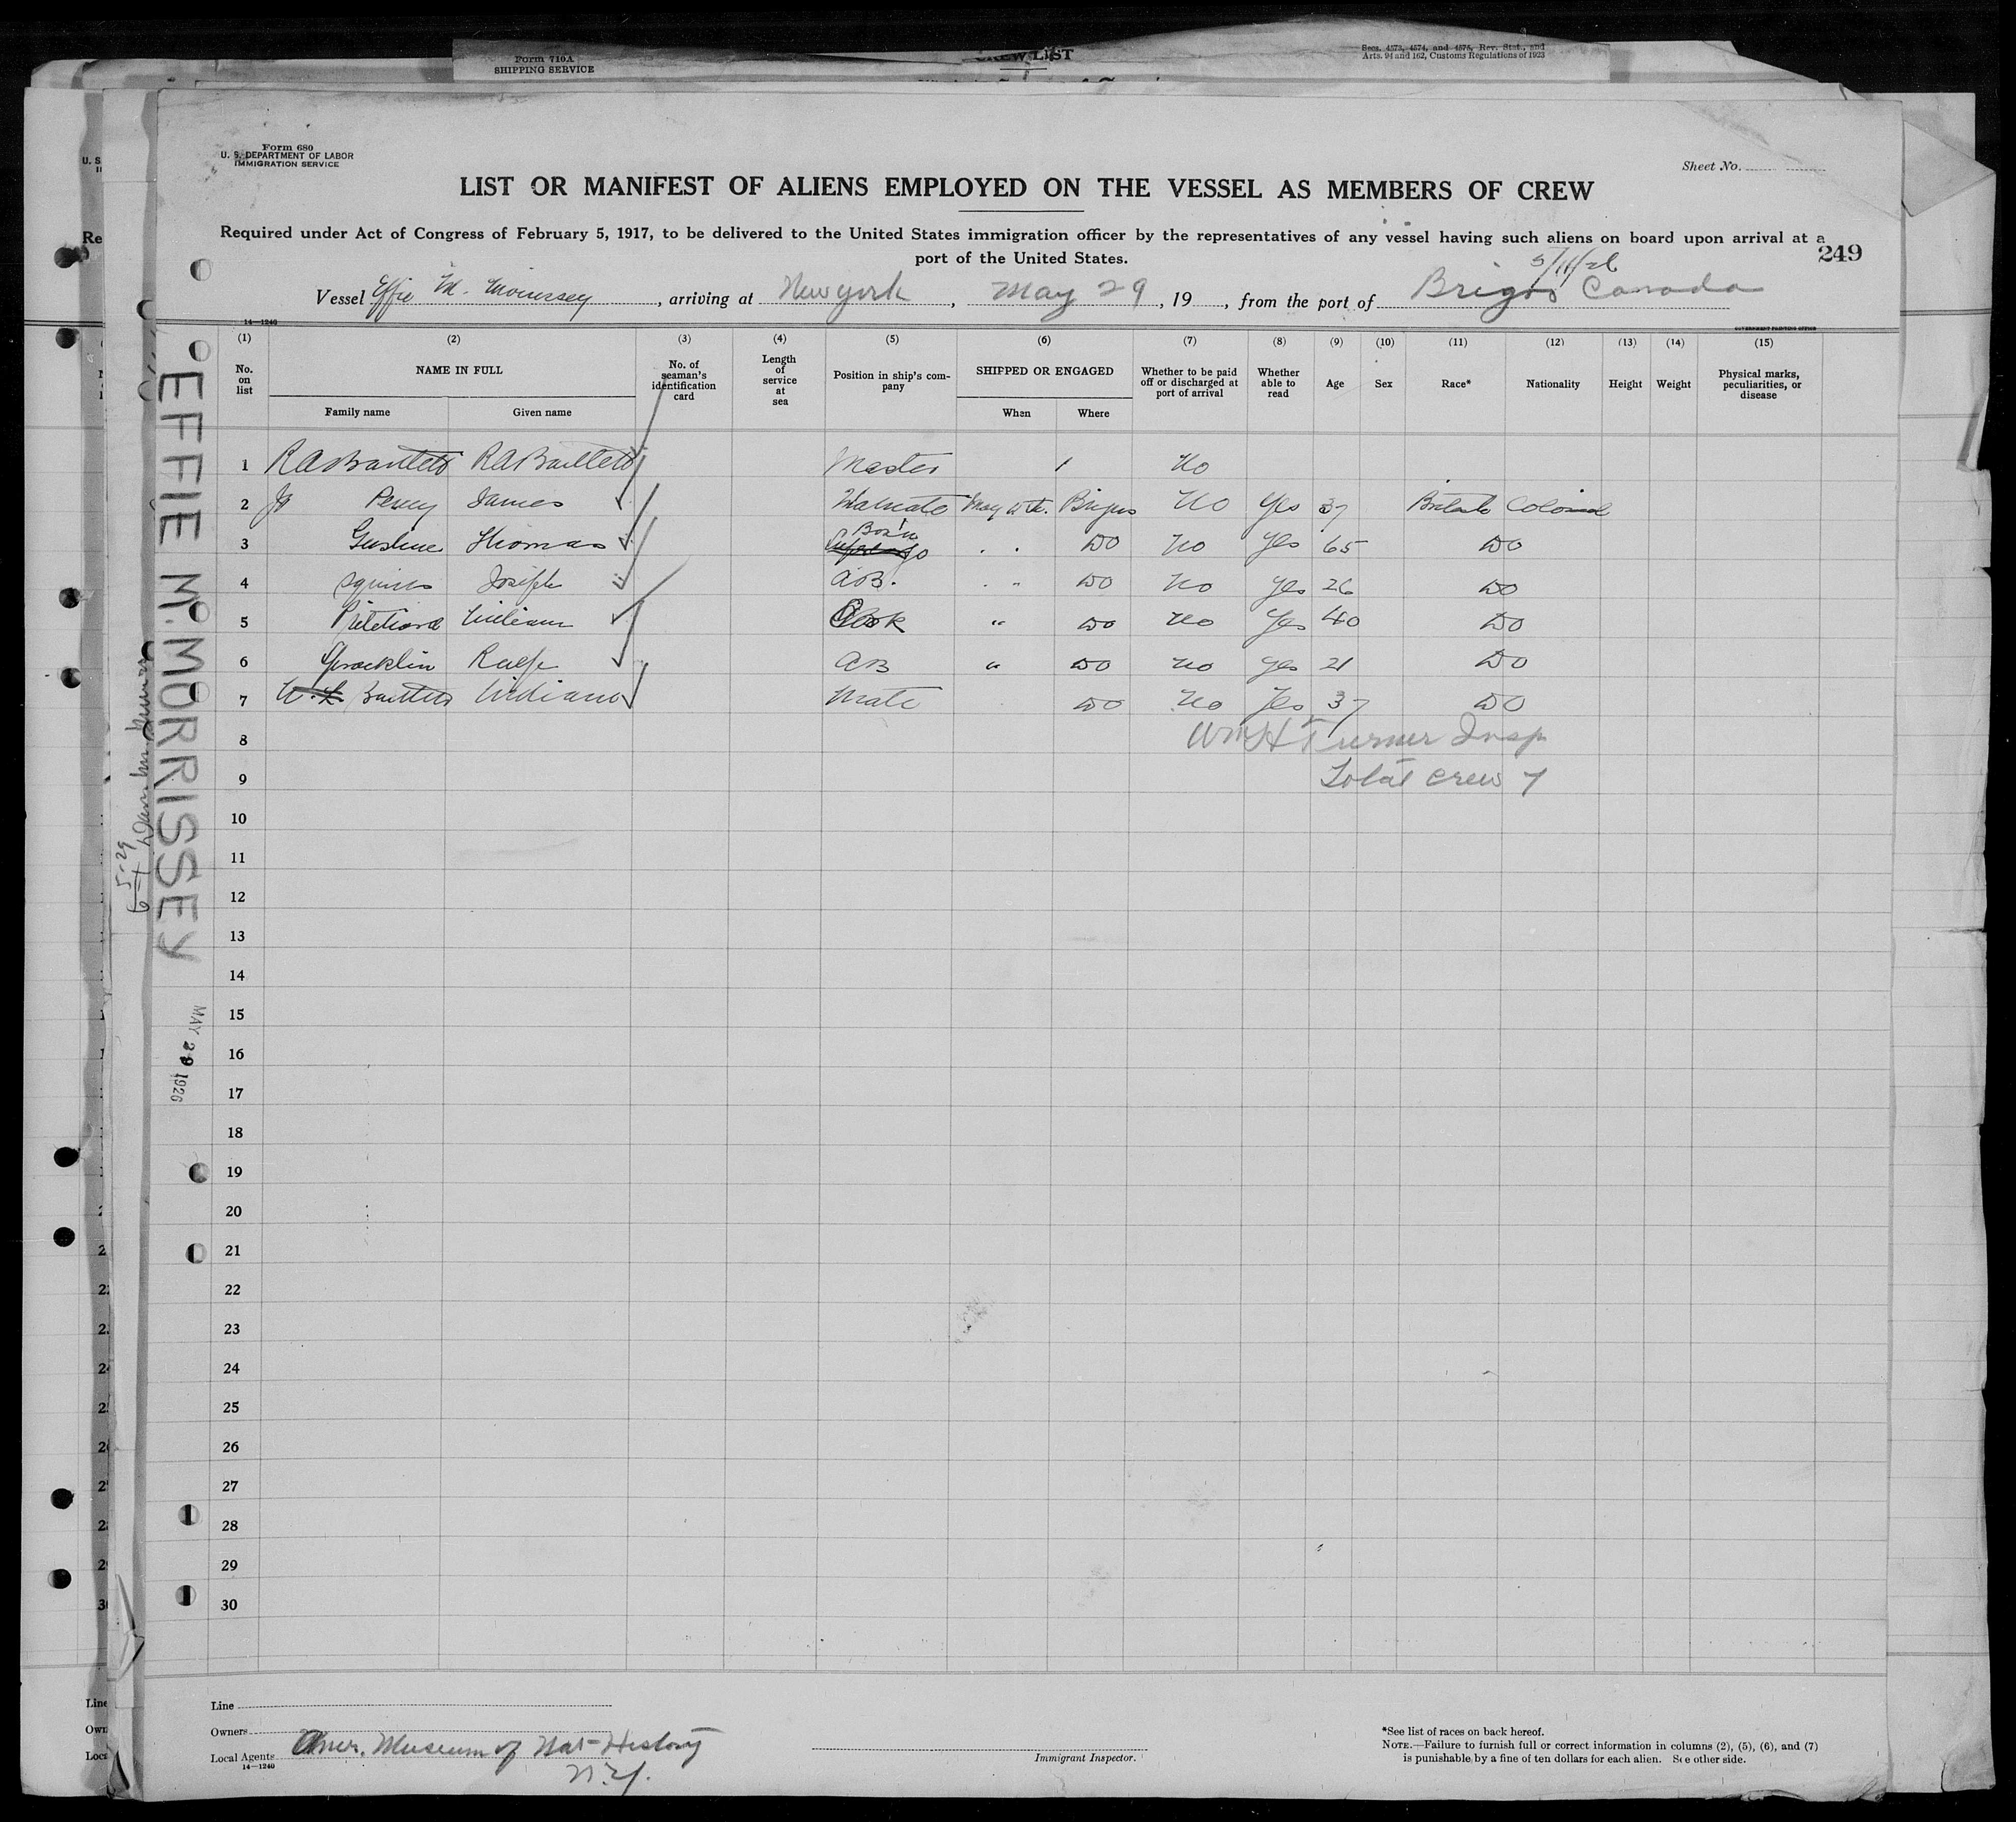 Form 710A
SHIPPING SERVICE
CREW LIST
Secs. 4573, 4574, and 4575, Rev. Stat., and
Arts. 94 and 162, Customs Regulations of 1923
Form 680
U. S. DEPARTMENT OF LABOR
IMMIGRATION SERVICE
Sheet No.
LIST OR MANIFEST OF ALIENS EMPLOYED ON THE VESSEL AS MEMBERS OF CREW
Required under Act of Congress of February 5, 1917, to be delivered to the United States immigration officer by the representatives of any vessel having such aliens on board upon arrival at a
port of the United States.
249
5/11/26
Vessel Effie M. Morrissey, arriving at New York, May 29, 19, from the port of Brigus Canada
14—1240
GOVERNMENT PRINTING OFFICE
(1) (2) (3) (4) (5) (6) (7) (8) (9) (10) (11) (12) (13) (14) (15)
No. on list NAME IN FULL No. of seaman's identification card Length of service at sea Position in ship's company SHIPPED OR ENGAGED Whether to be paid off or discharged at port of arrival Whether able to read Age Sex Race* Nationality Height Weight Physical marks, peculiarities, or disease
Family name Given name When Where
1 R A Bartlett R A Bartlett Master No
2 Percy James May Brigus No Yes 37
3 Thomas Bos'n Do No Yes 65 Do
4 Squires Joseph A.B. " Do No Yes 26 Do
5 William Cook " Do No Yes 40 Do
6 AB " Do No Yes 21 Do
7 Bartlett William Mate Do No Yes 37 Do
8 Wm H Turner Insp
9 Total crew 7
10
11
12
13
14
15
16
17
18
19
20
21
22
23
24
25
26
27
28
29
30
EFFIE M. MORRISSEY
MAY 29 1926
5-29
Line
Owners
Local Agents Amer. Museum of Nat-History
N.Y.
14—1240
Immigrant Inspector.
*See list of races on back hereof.
NOTE.—Failure to furnish full or correct information in columns (2), (5), (6), and (7)
is punishable by a fine of ten dollars for each alien. See other side.